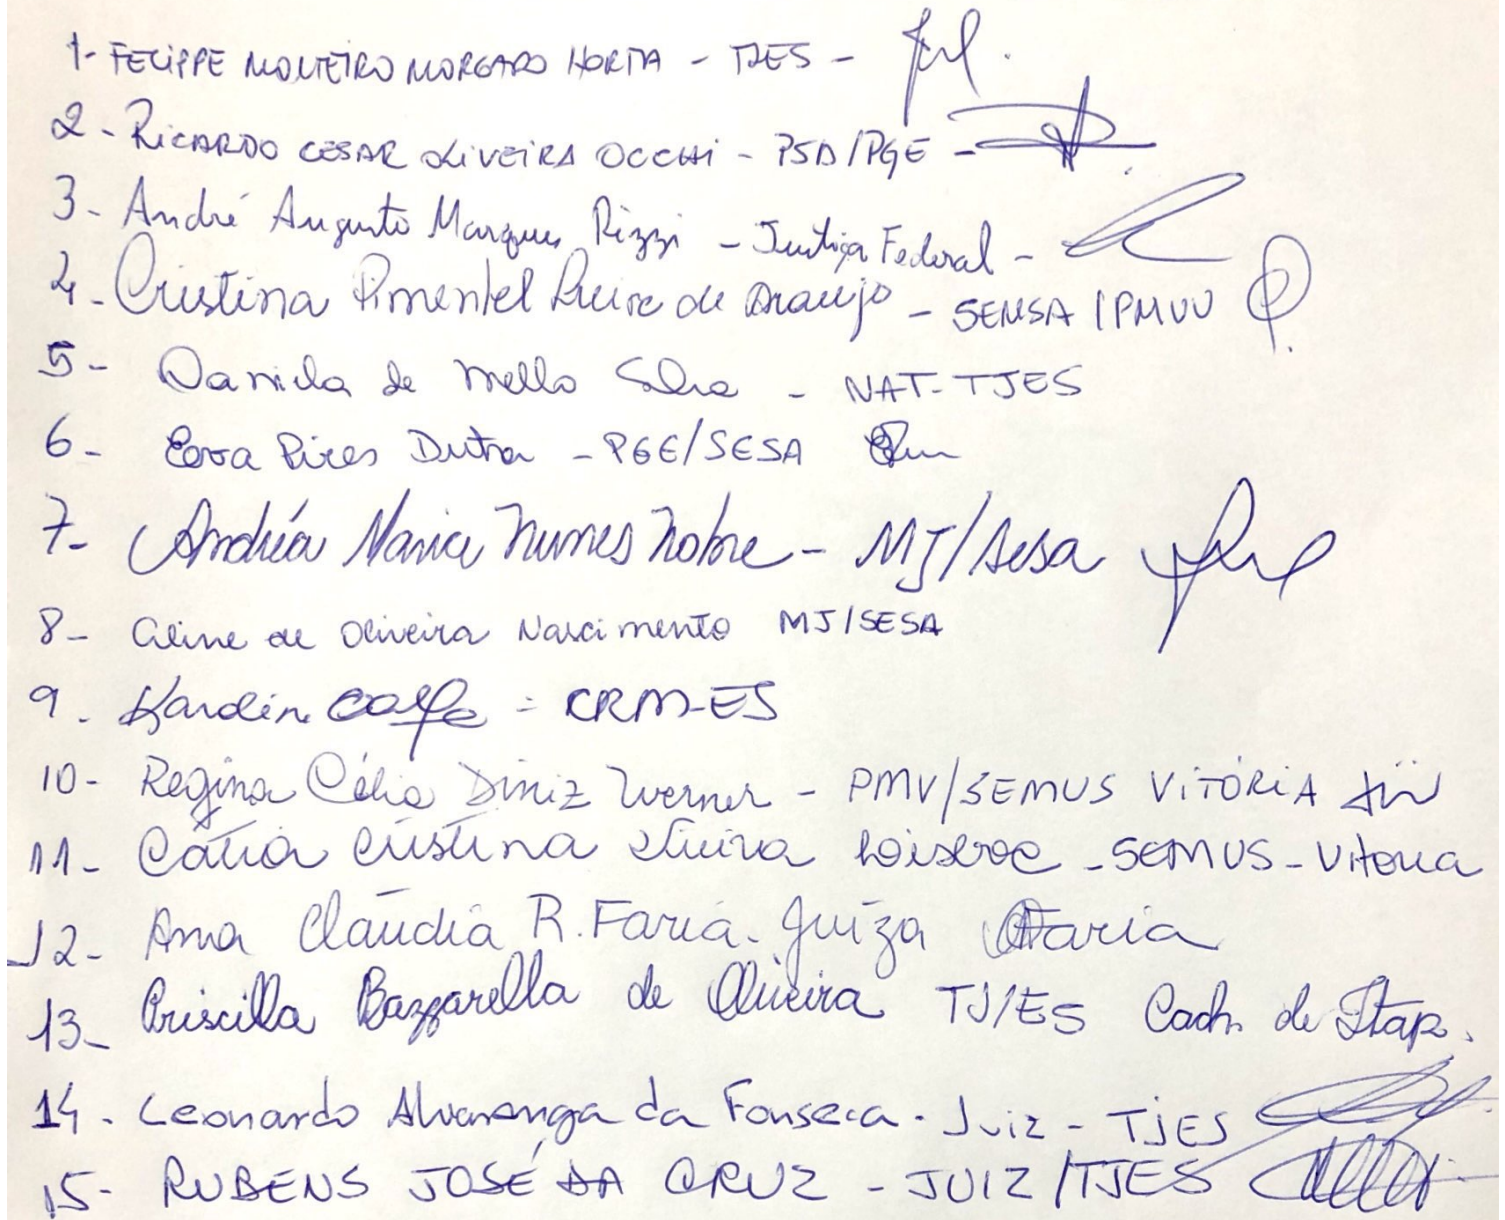 1- FELIPPE MONTEIRO MORGADO HORTA - TJES -
2- RICARDO CESAR OLIVEIRA OCCHI - PSD/PGE -
3- André Augusto Marques Rizzi - Justiça Federal -
4- Cristina Pimentel de Araujo - SEMSA/PMVV
5- Daniela de Mello Silva - NAT-TJES
6- Pires Dutra - PGE/SESA
7- Andréa Maria Nunes Nobre - MJ/Sesa
8- Aline de Oliveira Nascimento MJ/SESA
9. - CRM-ES
10- Regina Célia Diniz Werner - PMV/SEMUS VITÓRIA
11- Cátia Cristina Vieira - SEMUS - Vitoria
12- Ana Cláudia R. Faria. Juíza Faria
13- Priscilla Bazzarella de Oliveira TJ/ES Cach. de Itap.
14- Leonardo Alvarenga da Fonseca. Juiz - TJES
15- RUBENS JOSÉ DA CRUZ - JUIZ/TJES